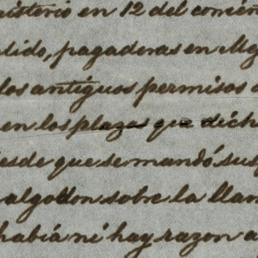 nisterio en 12 del corrien
dido, pagaderas en Mej
los antiguos permisos
en los plazos que dich
desde que se mandó sus
algodon sobre la llam
habia ni hay razon a